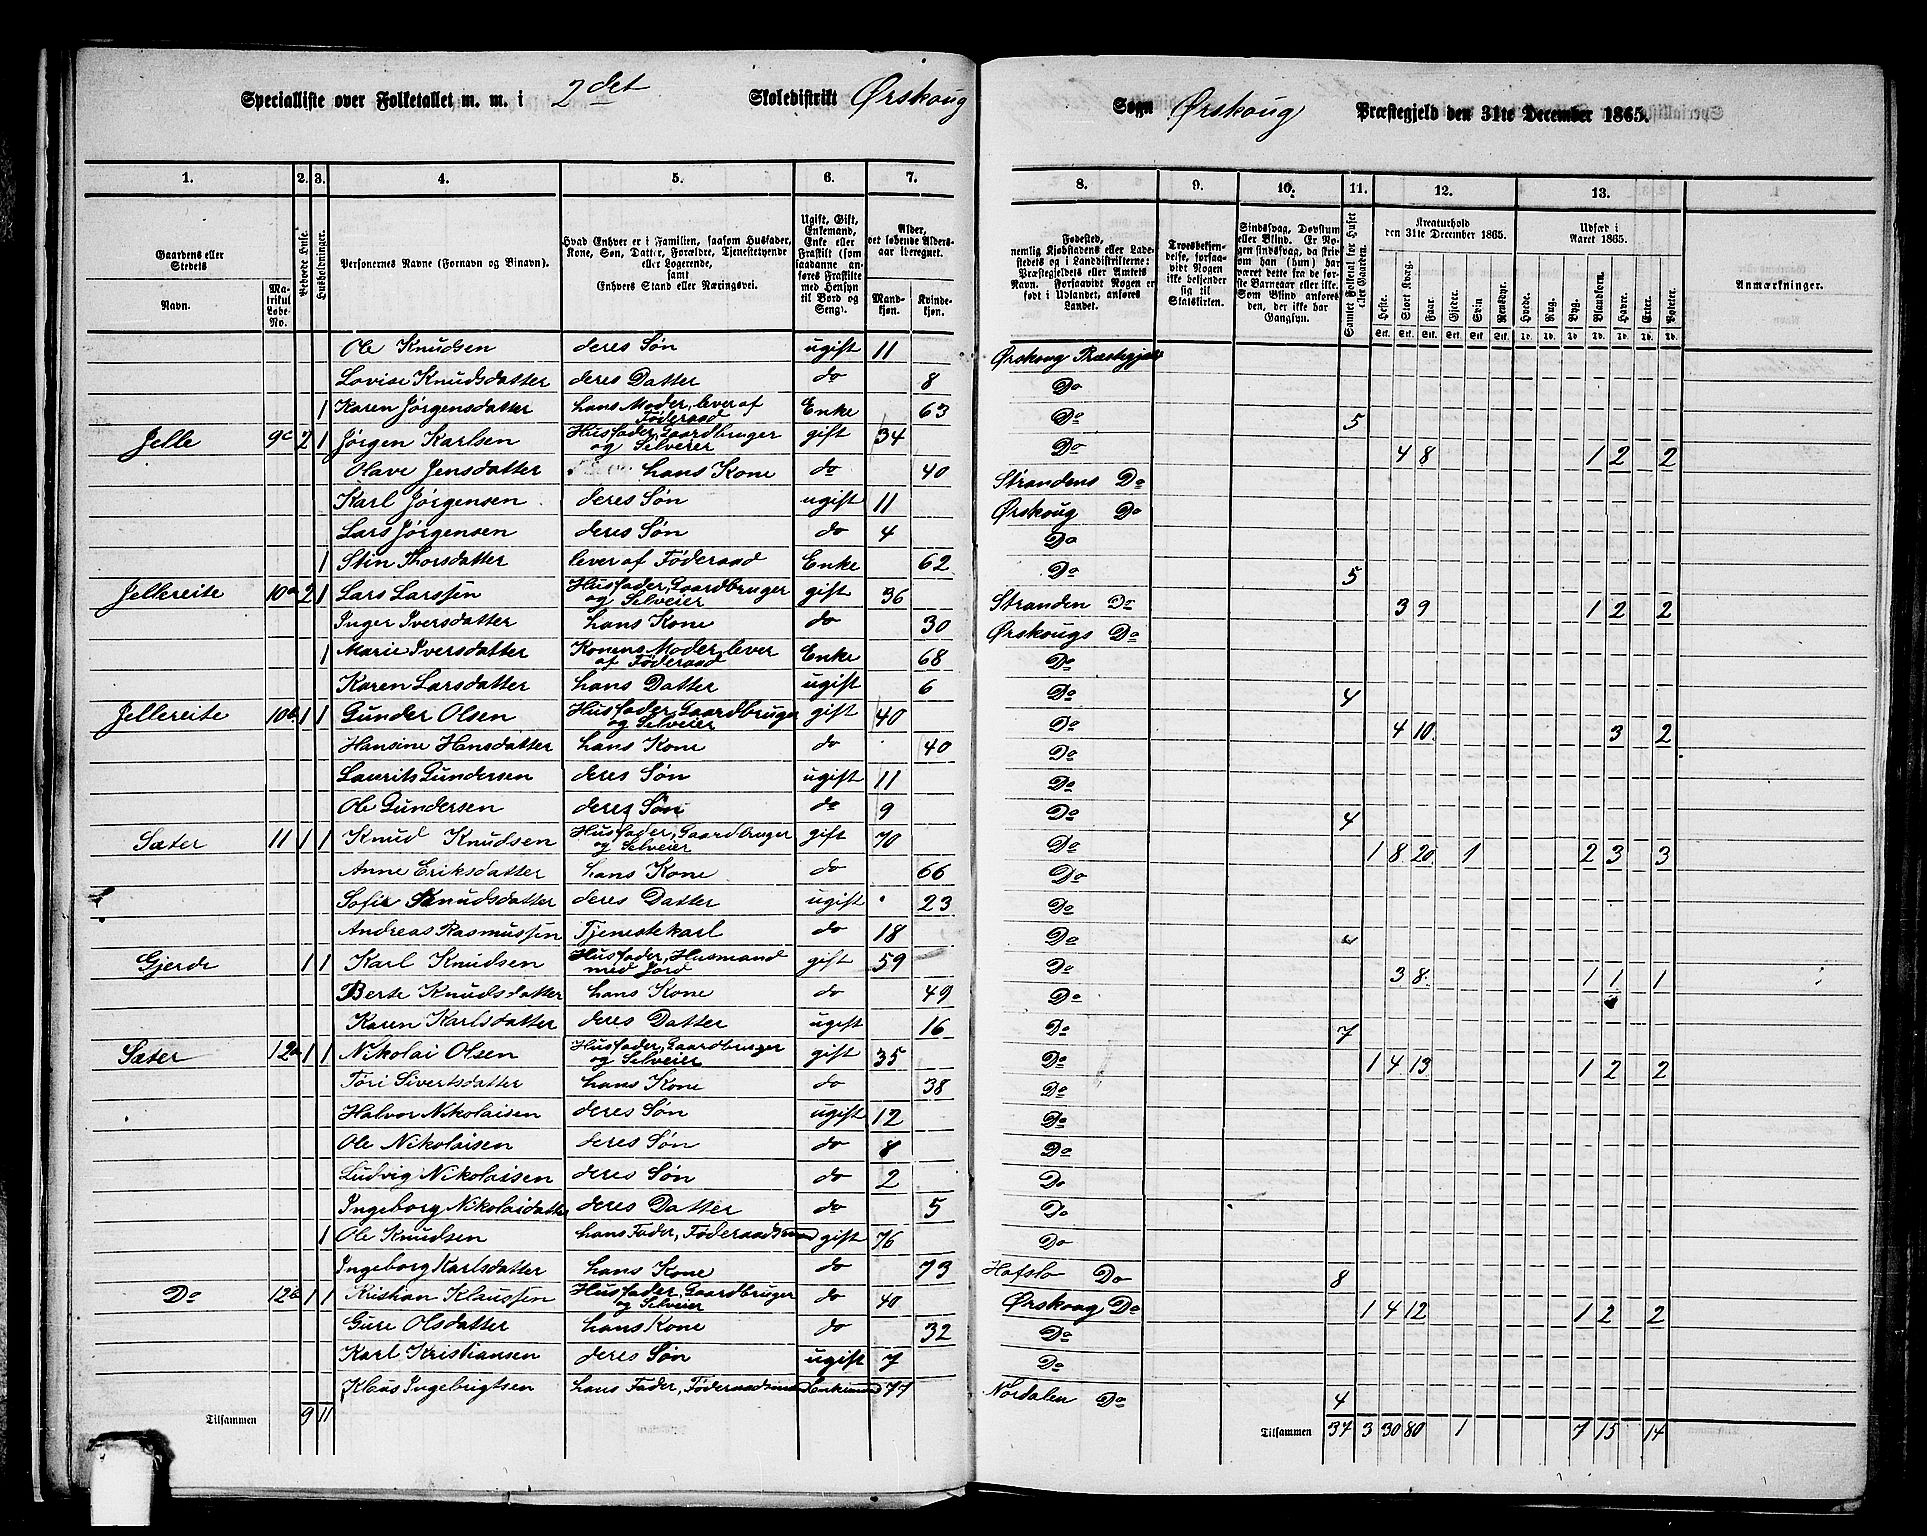 Specialliste over Folketallet m. m. i 2det Skoledistrikt Ørskoug Sogn Ørskoug Præstegjeld den 31te December 1865.
1. 2. 3. 4. 5. 6. 7. 8. 9. 10. 11. 12. 13.
Gaardens eller Stedets Navn. Matrikul Løbe-No. Beboede Huse. Husholdninger. Personernes Navne (Fornavn og Binavn). Hvad Enhver er i Familien, saasom Husfader, Kone, Søn, Datter, Forældre, Tjenestetyende eller Logerende, samt Enhvers Stand eller Næringsvei. Ugift, Gift, Enkemand, Enke eller Fraskilt (som saadanne anføres Fraskilte med Hensyn til Bord og Seng). Alder, det løbende Alders-aar iberegnet. Mandkjøn. Kvindekjøn.
Fødested, nemlig Kjøbstadens eller Ladestedets og i Landdistrikterne: Præstegjeldets eller Amtets Navn. Forsaavidt Nogen er født i Udlandet, anføres Landet. Troesbekjendelse, forsaavidt Nogen ikke bekjender sig til Statskirken. Sindssvag, Døvstum eller Blind. Er Nogen sindssvag, da skrives om han (hun) har været dette fra de første Barneaar eller ikke. Som Blind anføres den, der ikke har Gangsyn. Samlet Folketal for Huset eller Gaarden. Kreaturhold den 31te December 1865. Heste. Stort Kvæg. Faar. Gjeder. Sviin. Rensdyr. Udsæd i Aaret 1865. Hvede. Rug. Byg. Blandkorn. Havre. Erter. Poteter. Anmærkninger.
Ole Knudsen deres Søn ugift 11 Ørskoug Præstegjeld
Lovise Knudsdatter deres Datter do 8 Do
1 Karen Jørgensdatter hans Moder, lever af Føderaad Enke 63 Do 5
Jelle 9c 2 1 Jørgen Karlsen Husfader, Gaardbruger og Selveier gift 34 Do 4 8 1 2 2
Olave Jensdatter hans Kone do 40 Strandens Do
Karl Jørgensen deres Søn ugift 11 Ørskoug Do
Lars Jørgensen deres Søn do 4 Do
1 Stin Thorsdatter lever af Føderaad Enke 62 Do 5
Jellereite 10a 2 1 Lars Larssen Husfader, Gaardbruger og Selveier gift 36 Stranden Do 3 9 1 2 2
Inger Iversdatter hans Kone do 30 Ørskougs Do
1 Marie Iversdatter Konens Moder, lever af Føderaad Enke 68 Do
Karen Larsdatter hans Datter ugift 6 Do 4
Jellereite 10b 1 1 Gunder Olsen Husfader, Gaardbruger og Selveier gift 40 Do 4 10 3 2
Hansine Hansdatter hans Kone do 40 Do
Laurits Gundersen deres Søn ugift 11 Do
Ole Gundersen deres Søn do 9 Do 4
Sæter 11 1 1 Knud Knudsen Husfader, Gaardbruger og Selveier gift 70 Do 1 8 20 1 2 3 3
Anne Eriksdatter hans Kone do 66 Do
Sofie Knudsdatter deres Datter ugift 23 Do
Andreas Rasmussen Tjenestekarl do 18 Do 4
Gjerde 1 1 Karl Knudsen Husfader, Husmand med Jord gift 59 Do 3 8 1 1 1
Berte Knudsdatter hans Kone do 49 Do
Karen Karlsdatter deres Datter ugift 16 Do 7
Sæter 12a 1 1 Nikolai Olsen Husfader, Gaardbruger og Selveier gift 35 Do 1 4 13 1 2 2
Tøri Sivertsdatter hans Kone do 38 Do
Halvor Nikolaisen deres Søn ugift 12 Do
Ole Nikolaisen deres Søn do 8 Do
Ludvig Nikolaisen deres Søn do 2 Do
Ingeborg Nikolaidatter deres Datter do 5 Do
1 Ole Knudsen hans Fader, Føderaadsmand gift 76 Do
Ingeborg Karlsdatter hans Kone do 73 Hafslo Do 8
Do 12b 1 1 Kristian Klaussen Husfader, Gaardbruger og Selveier do 40 Ørskoug Do 1 4 12 1 2 2
Gure Olsdatter hans Kone do 32 Do
Karl Kristiansen deres Søn ugift 7 Do
Klaus Ingebrigtsen hans Fader, Føderaadsmand Enkemand 77 Nordalen Do 4
Tilsammen 9 11 Tilsammen 37 3 30 80 1 7 15 14